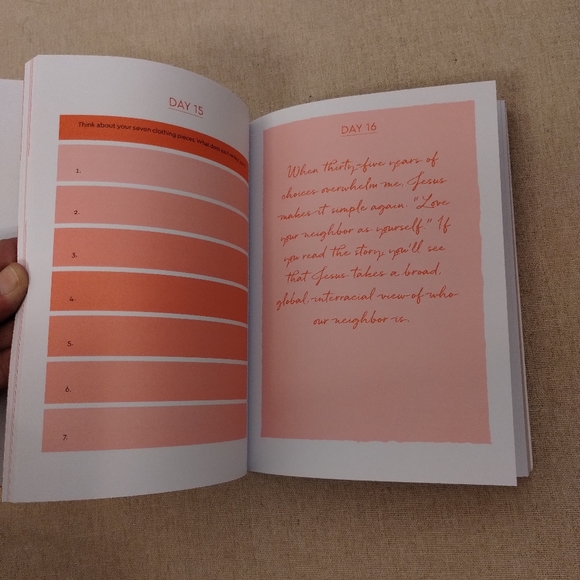 DAY 15
Think about your seven clothing pieces. What does
1.
2.
3.
4.
5.
6.
7.
DAY 16
When thirty-five years of
choices overwhelm me, Jesus
makes it simple again. "Love
your neighbor as yourself." If
you read the story, you'll see
that Jesus takes a broad,
global, interracial view of who
our neighbor is.